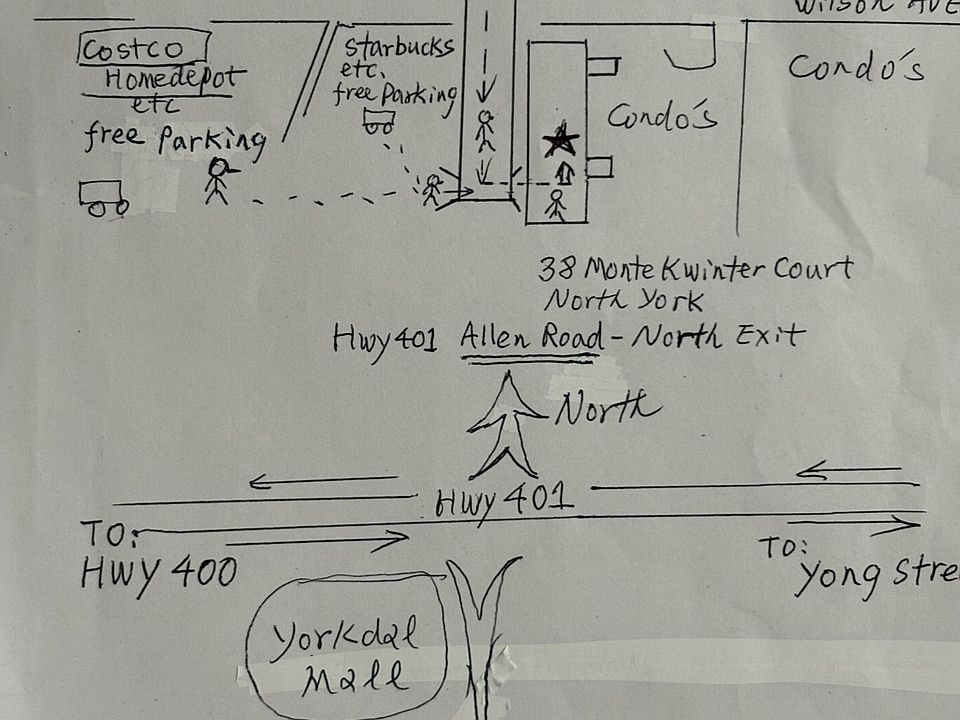 Wilson AVE
COSTCO
Homedepot
etc
free Parking
Starbucks
etc.
free Parking
Condo's
Condo's
38 Monte Kwinter Court
North York
Hwy 401 Allen Road - North Exit
North
HWY 401
TO:
HWY 400
TO:
Yong Stre
Yorkdal
Mall